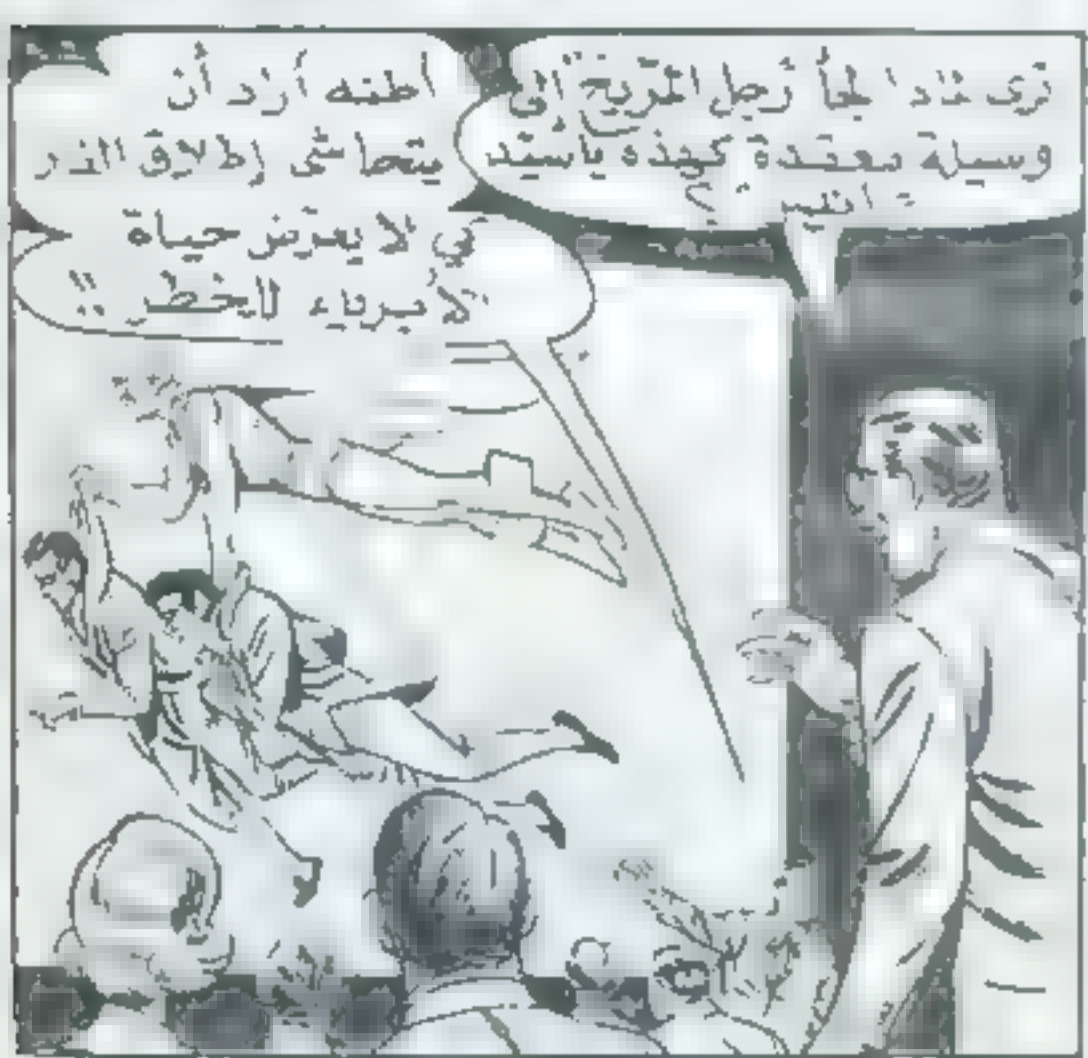 ترى لماذا لجأ رجل المريخ إلى
وسيلة معقدة كهذه يا سيد
؟
أظنه أراد أن
يتحاشى إطلاق النار
كي لا يعرض حياة
الأبرياء للخطر !!